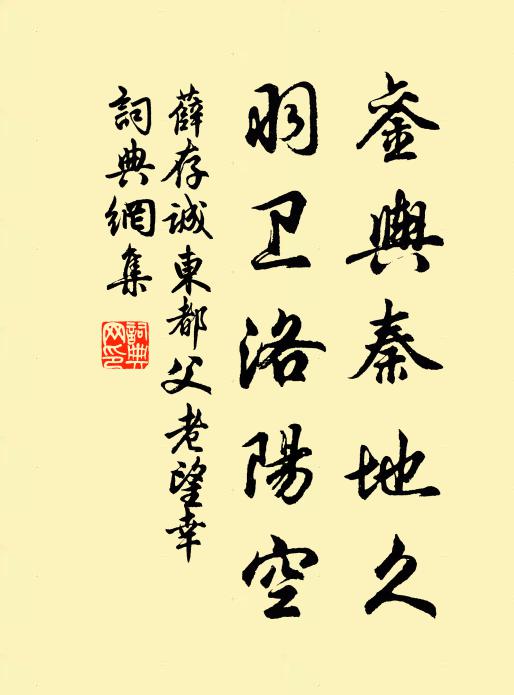 銮輿秦地久
羽卫洛陽空
薛存誠東都父老望幸
詞典網集
詞典
网印